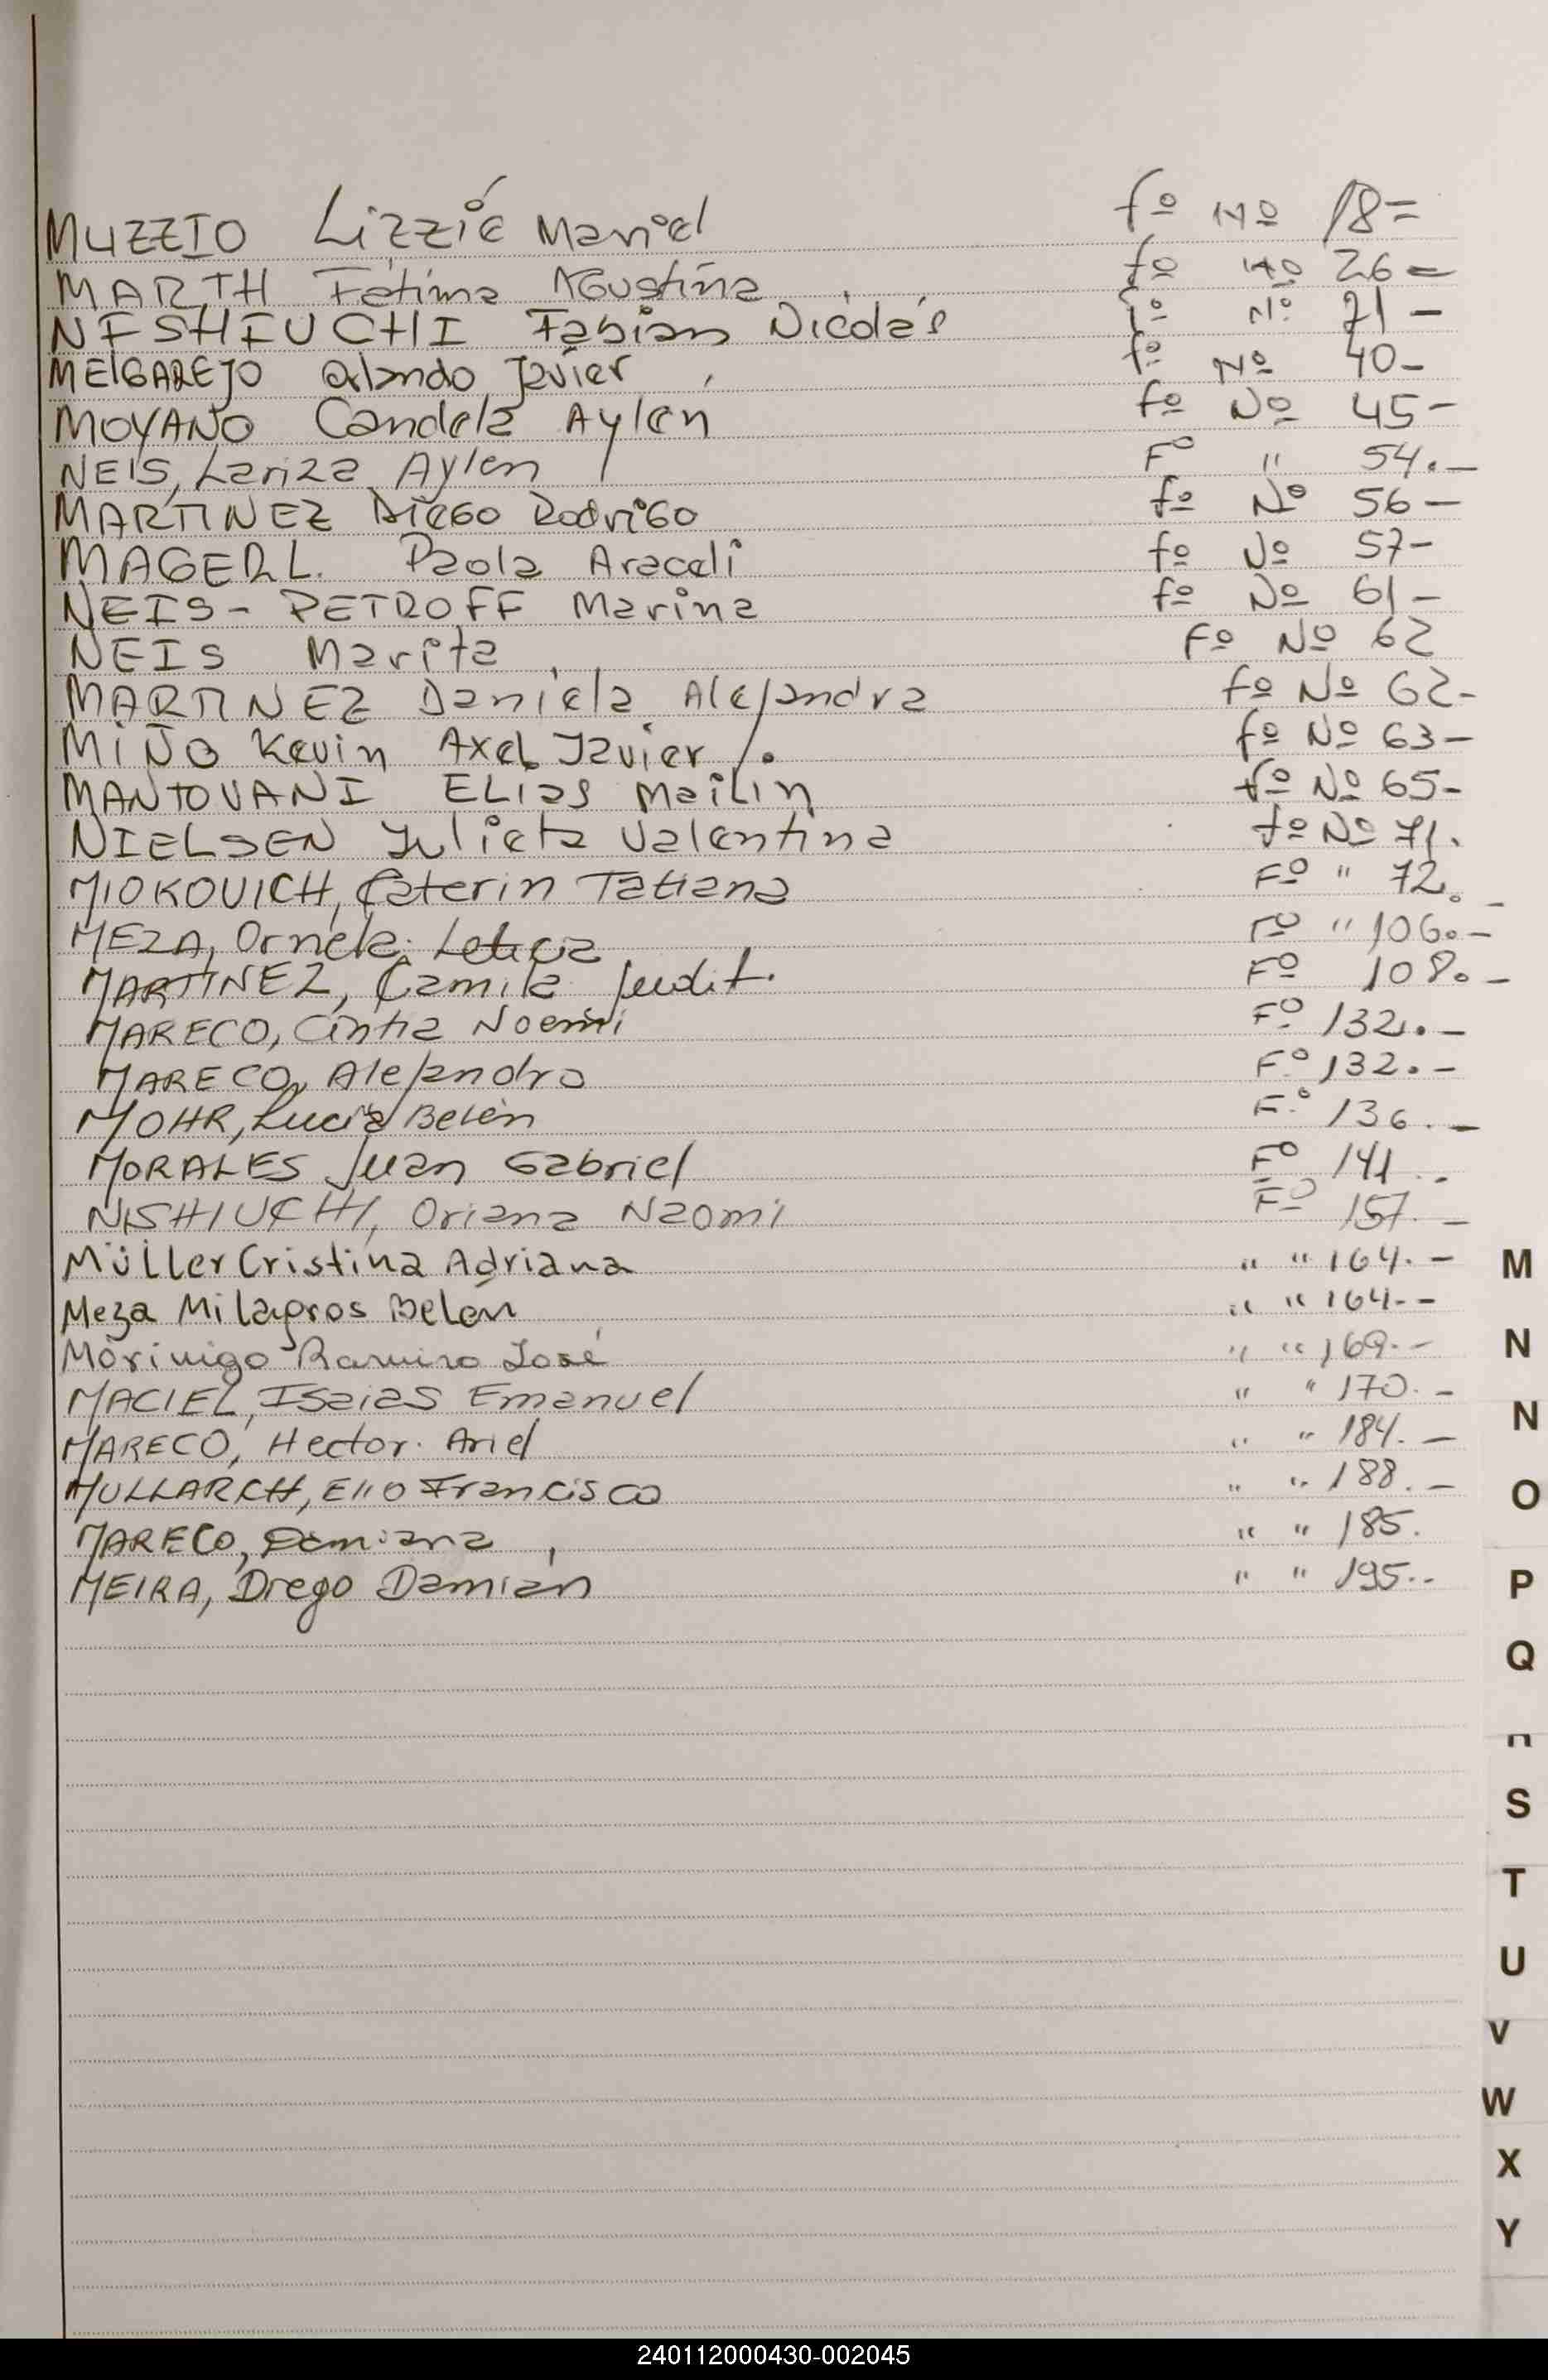 MUZZIO Lizzié Mariel fº Nº 18=
MARTH Fátima Agustina fº Nº 26=
NISHIUCHI Fabian Nicolás fº Nº 21-
MElGAREJO Orlando Javier fº Nº 40-
MOYANO Candela Aylén fº Nº 45-
NEIS, Lariza Aylen Fº " 54.-
MARTINEZ DieGO RodriGO fº Nº 56-
MAGERL. Paola Araceli fº Nº 57-
NEIS- PETROFF Marina fº Nº 61-
NEIS Marita Fº Nº 62
MARTINEZ Daniela Alejandra fº Nº 62-
MiÑO Kevin Axel Javier fº Nº 63-
MANTOVANI ELias Mailin fº Nº 65-
NIELSEN Julieta Valentina fº Nº 71.
MIOKOVICH, Caterin Tatiana Fº " 72.-
MEZA, Ornela Leticia Fº " 106.-
MARTINEZ, Camila Judit. Fº 108.-
MARECO, Cintia Noemi Fº 132.-
MARECO, Alejandro Fº 132.-
MOHR, Lucía Belén Fº 136.-
MORALES Juan Gabriel Fº 141..
NISHIUCHI, Oriana Naomi Fº 157.-
Müller Cristina Adriana " " 164.-
Meza Milagros Belén " " 164.-
Morinigo Ramiro José " " 169.-
MACIEL, Isaias Emanuel " " 170.-
MARECO, Hector. Ariel " " 184.-
MULLARCH, Elio Francisco " " 188.-
MARECO, Damiana " " 185.
MEIRA, Diego Damián " " 195.-
M
N
N
O
P
Q
S
T
U
V
W
X
Y
240112000430-002045